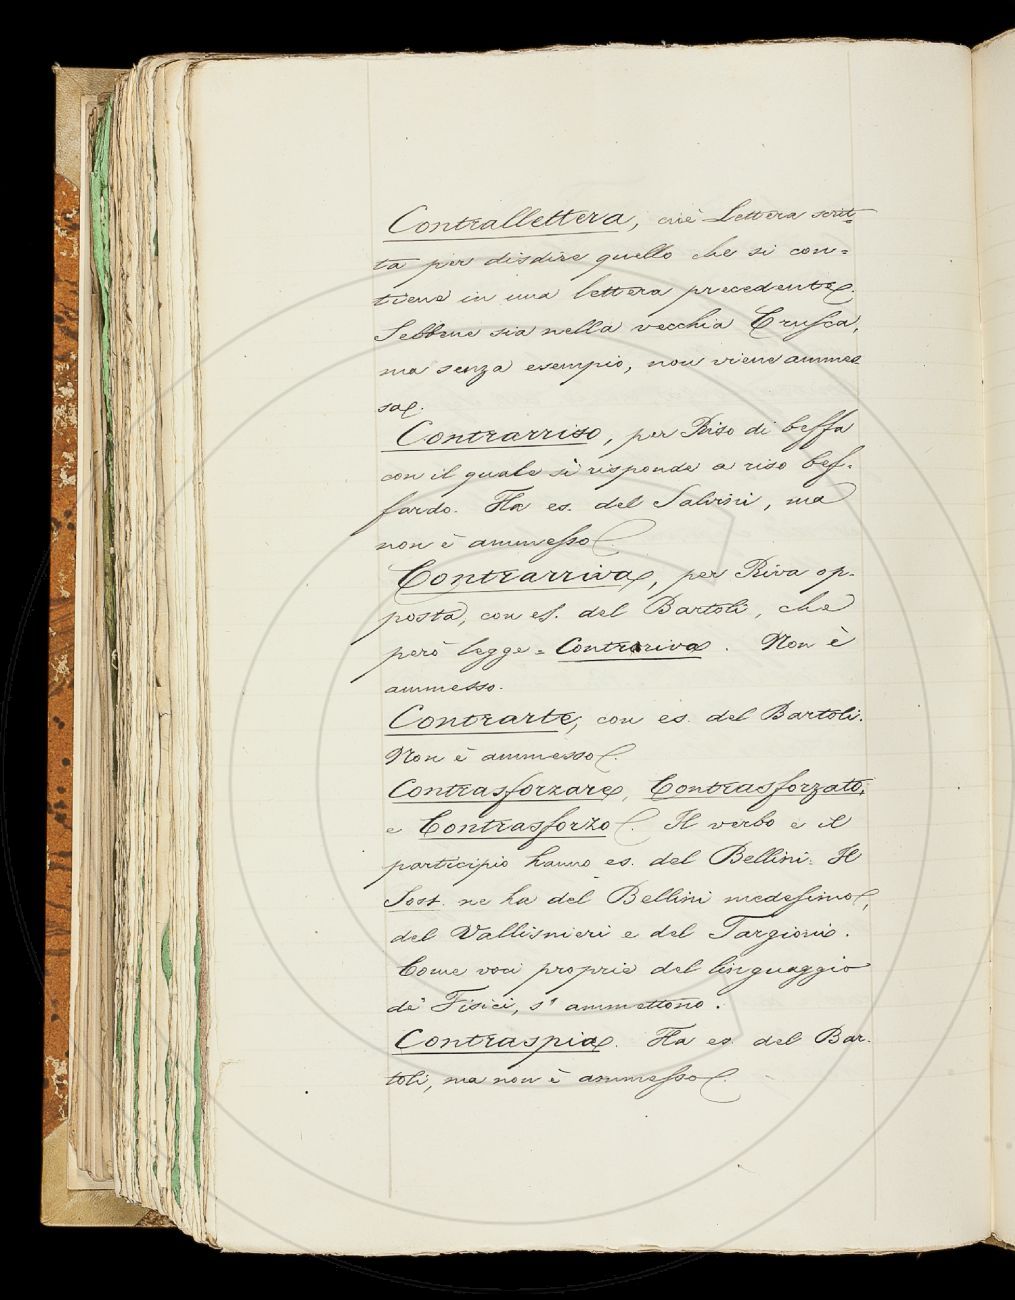 Contrallettera, cioè Lettera scrit-
ta per disdire quello che si con=
tiene in una lettera precedente.
Sebbene sia nella vecchia Crusca,
ma senza esempio, non viene ammes
sa.
Contrarriso, per Riso di beffa
con il quale si risponde a riso bef-
fardo. Ha es. del Salvini, ma
non è ammesso
Contrarriva, per Riva op-
posta, con es. del Bartoli, che
però legge = Contrariva. Non è
ammesso.
Contrarte, con es. del Bartoli.
Non è ammesso.
Contrasforzare, Contrasforzato,
e Contrasforzo. Il verbo e il
participio hanno es. del Bellini. Il
Sost. ne ha del Bellini medesimo,
del Vallisnieri e del Targioni.
Come voci proprie del linguaggio
de' Fisici, s' ammettono.
Contraspia. Ha es. del Bar-
toli, ma non è ammesso.